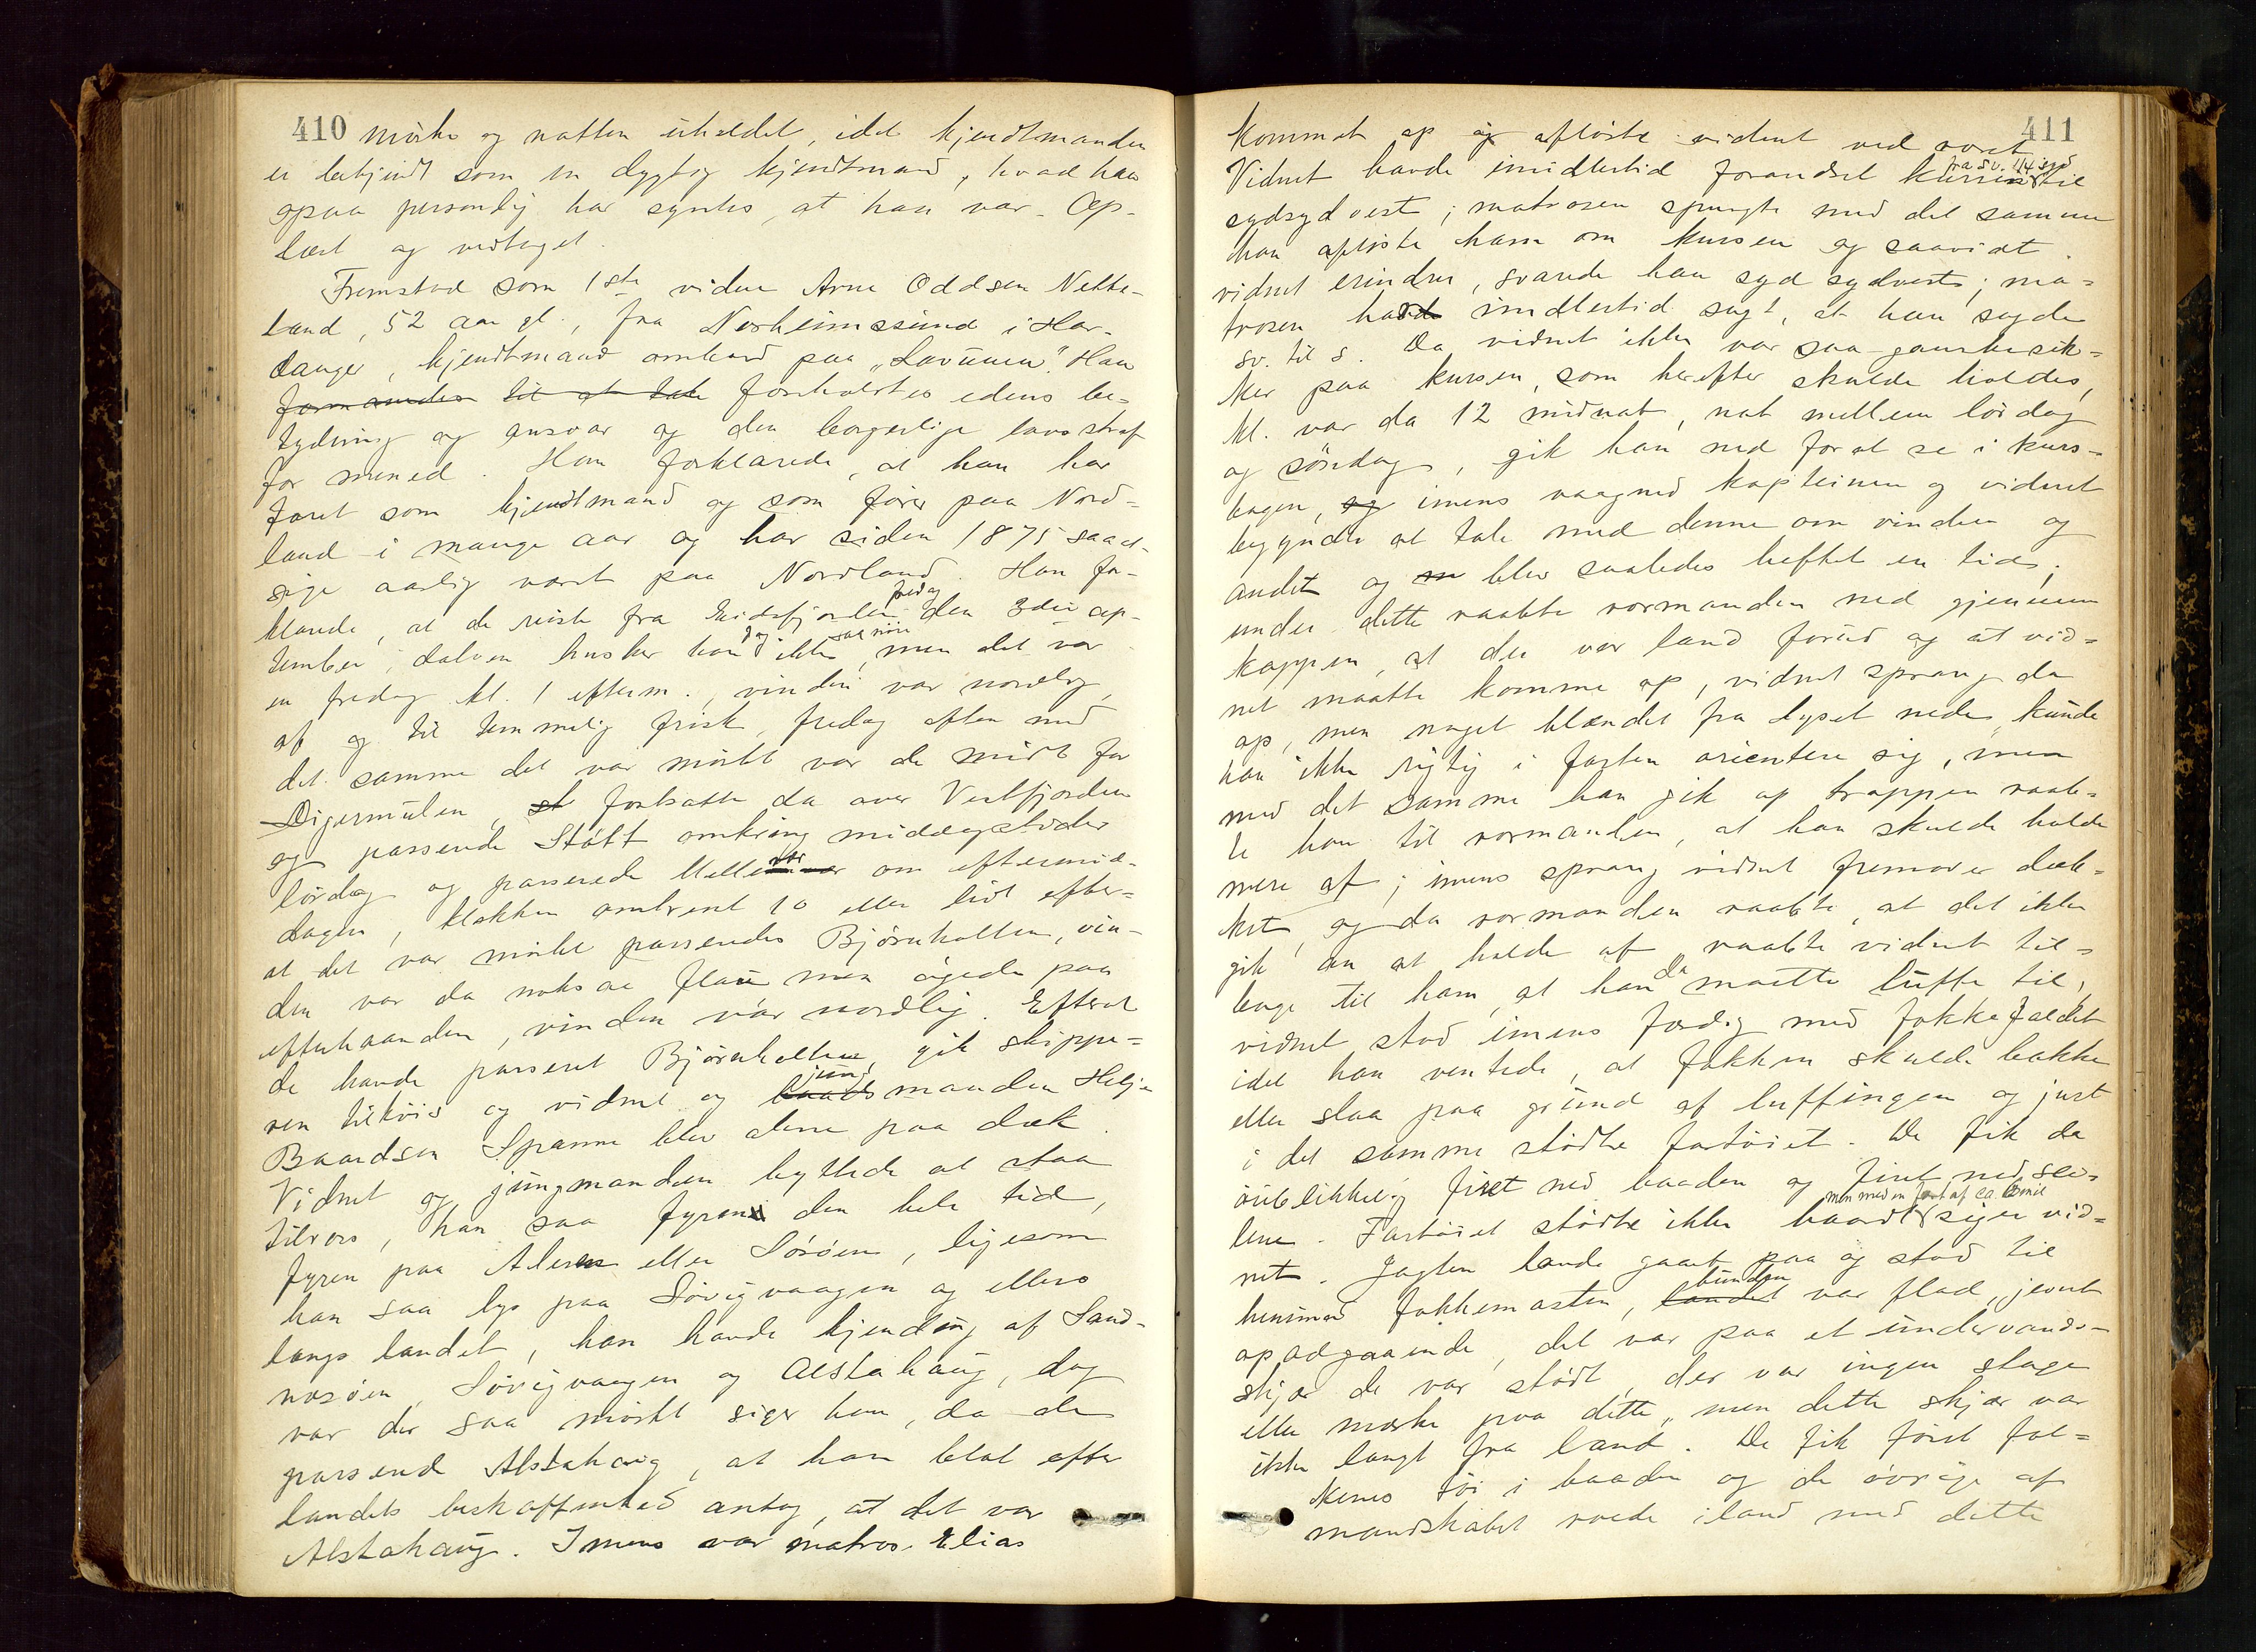 410 mörke og natten uheldet, idet kjendtmanden
er bekjendt som en dygtig kjendtmand, hvad han
ogsaa personlig har syntes, at han var. Op-
læst og vedtaget.
Fremstod som 1ste vidne Arne Oddsen Nette-
land, 52 aar gl., fra Norheimssund i Har-
danger, kjendtmand ombord paa „Lovunen". Han
formanedes til at tale foreholdtes edens be-
tydning og ansvar og den borgerlige lovs straf
for mened. Han forklarede, at han har
faret som kjendtmand og som fører paa Nord-
land i mange aar og har siden 1875 saa at
sige aarlig været paa Nordland. Han for-
klarede, at de reiste fra Eidsfjorden fredag den 3die sep-
tember, datoen husker han dog ikke saa nöie, men det var
en fredag kl. 1 efterm., vinden var nordlig,
af og til temmelig frisk, fredag aften med
det samme det var mörkt var de midt for
Digermulen, st fortsatte da over Vestfjorden
og passerede Støtt omkring middagstider
lördag og passerede Mellem vær om eftermid-
dagen, klokken omtrent 10 eller lidt efter-
at det var mörkt passeredes Bjørnholten, vin-
den var da noksaa flau men øgede paa
efterhaanden, vinden var nordlig. Efterat
de havde passeret Bjørnholten, gik skippe-
ren tilköis og vidnet og baads jungmanden Helje
Baardsen Spanne blev alene paa dæk.
Vidnet og jungmanden byttede at staa
tilrors, han saa fyren den hele tid,
fyren paa Alsten eller Sørøen, ligesom
han saa lys paa Søvigvaagen og ellers
langs landet, han havde kjending af Sand-
nesøen, Søvigvaagen og Alstahaug, dog
var der saa mörkt siger han, da de
passerede Alstahaug, at han blot efter
landets beskaffenhed antog, at det var
Alstahaug. Imens var matros Elias
411
kommet op og aflöste vidnet ved roret.
Vidnet havde imidlertid forandret kursen fra S.V. 1/4 syd til
sydsydvest; matrosen spurgte med det samme
han aflöste ham om kursen og saavidt
vidnet erindrer, svarede han syd sydvest; ma-
trosen havde imidlertid sagt, at han sagde
sv. til s. Da vidnet ikke var saa ganske sik-
ker paa kursen, som herefter skulde holdes,
kl. var da 12 midnat, nat mellem lördag
og söndag, gik han ned for at se i kurs-
bogen, og imens vaagned kapteinen og vidnet
begyndte at tale med denne om vinden og
andet og blev saaledes heftet en tid;
under dette raabte rormanden ned gjennem
kappen, at der var land forud og at vid-
net maatte komme op, vidnet sprang da
op, men noget blændet fra lyset nede, kunde
han ikke rigtig i farten orientere sig, men
med det samme han gik op trappen raab-
te han til rormanden, at han skulde holde
mere af; imens sprang vidnet fremover dæk-
ket, og da rormanden raabte, at det ikke
gik an at holde af, raabte vidnet til-
bage til ham, at han da maatte luffe til,
vidnet stod imens færdig med fokkefaldet
idet han ventede, at fokken skulde bakke
eller slaa paa grund af luffingen og just
i det samme stödte fartöiet. De fik da
öieblikkelig firet ned baaden og firet ned sei-
lene. Fartöiet stödte ikke haardt men med en fart af ca. 6 mil siger vid-
net. Jagten havde gaaet paa og stod til
henimod fokkemasten, landet bunden var flad, jevnt
opadgaaende, det var paa et undervands-
skjær de var stödt, der var ingen stage
eller mærke paa dette, men dette skjær var
ikke langt fra land. De fik först fol-
kenes töi i baaden og de övrige af
mandskabet roede iland med dette